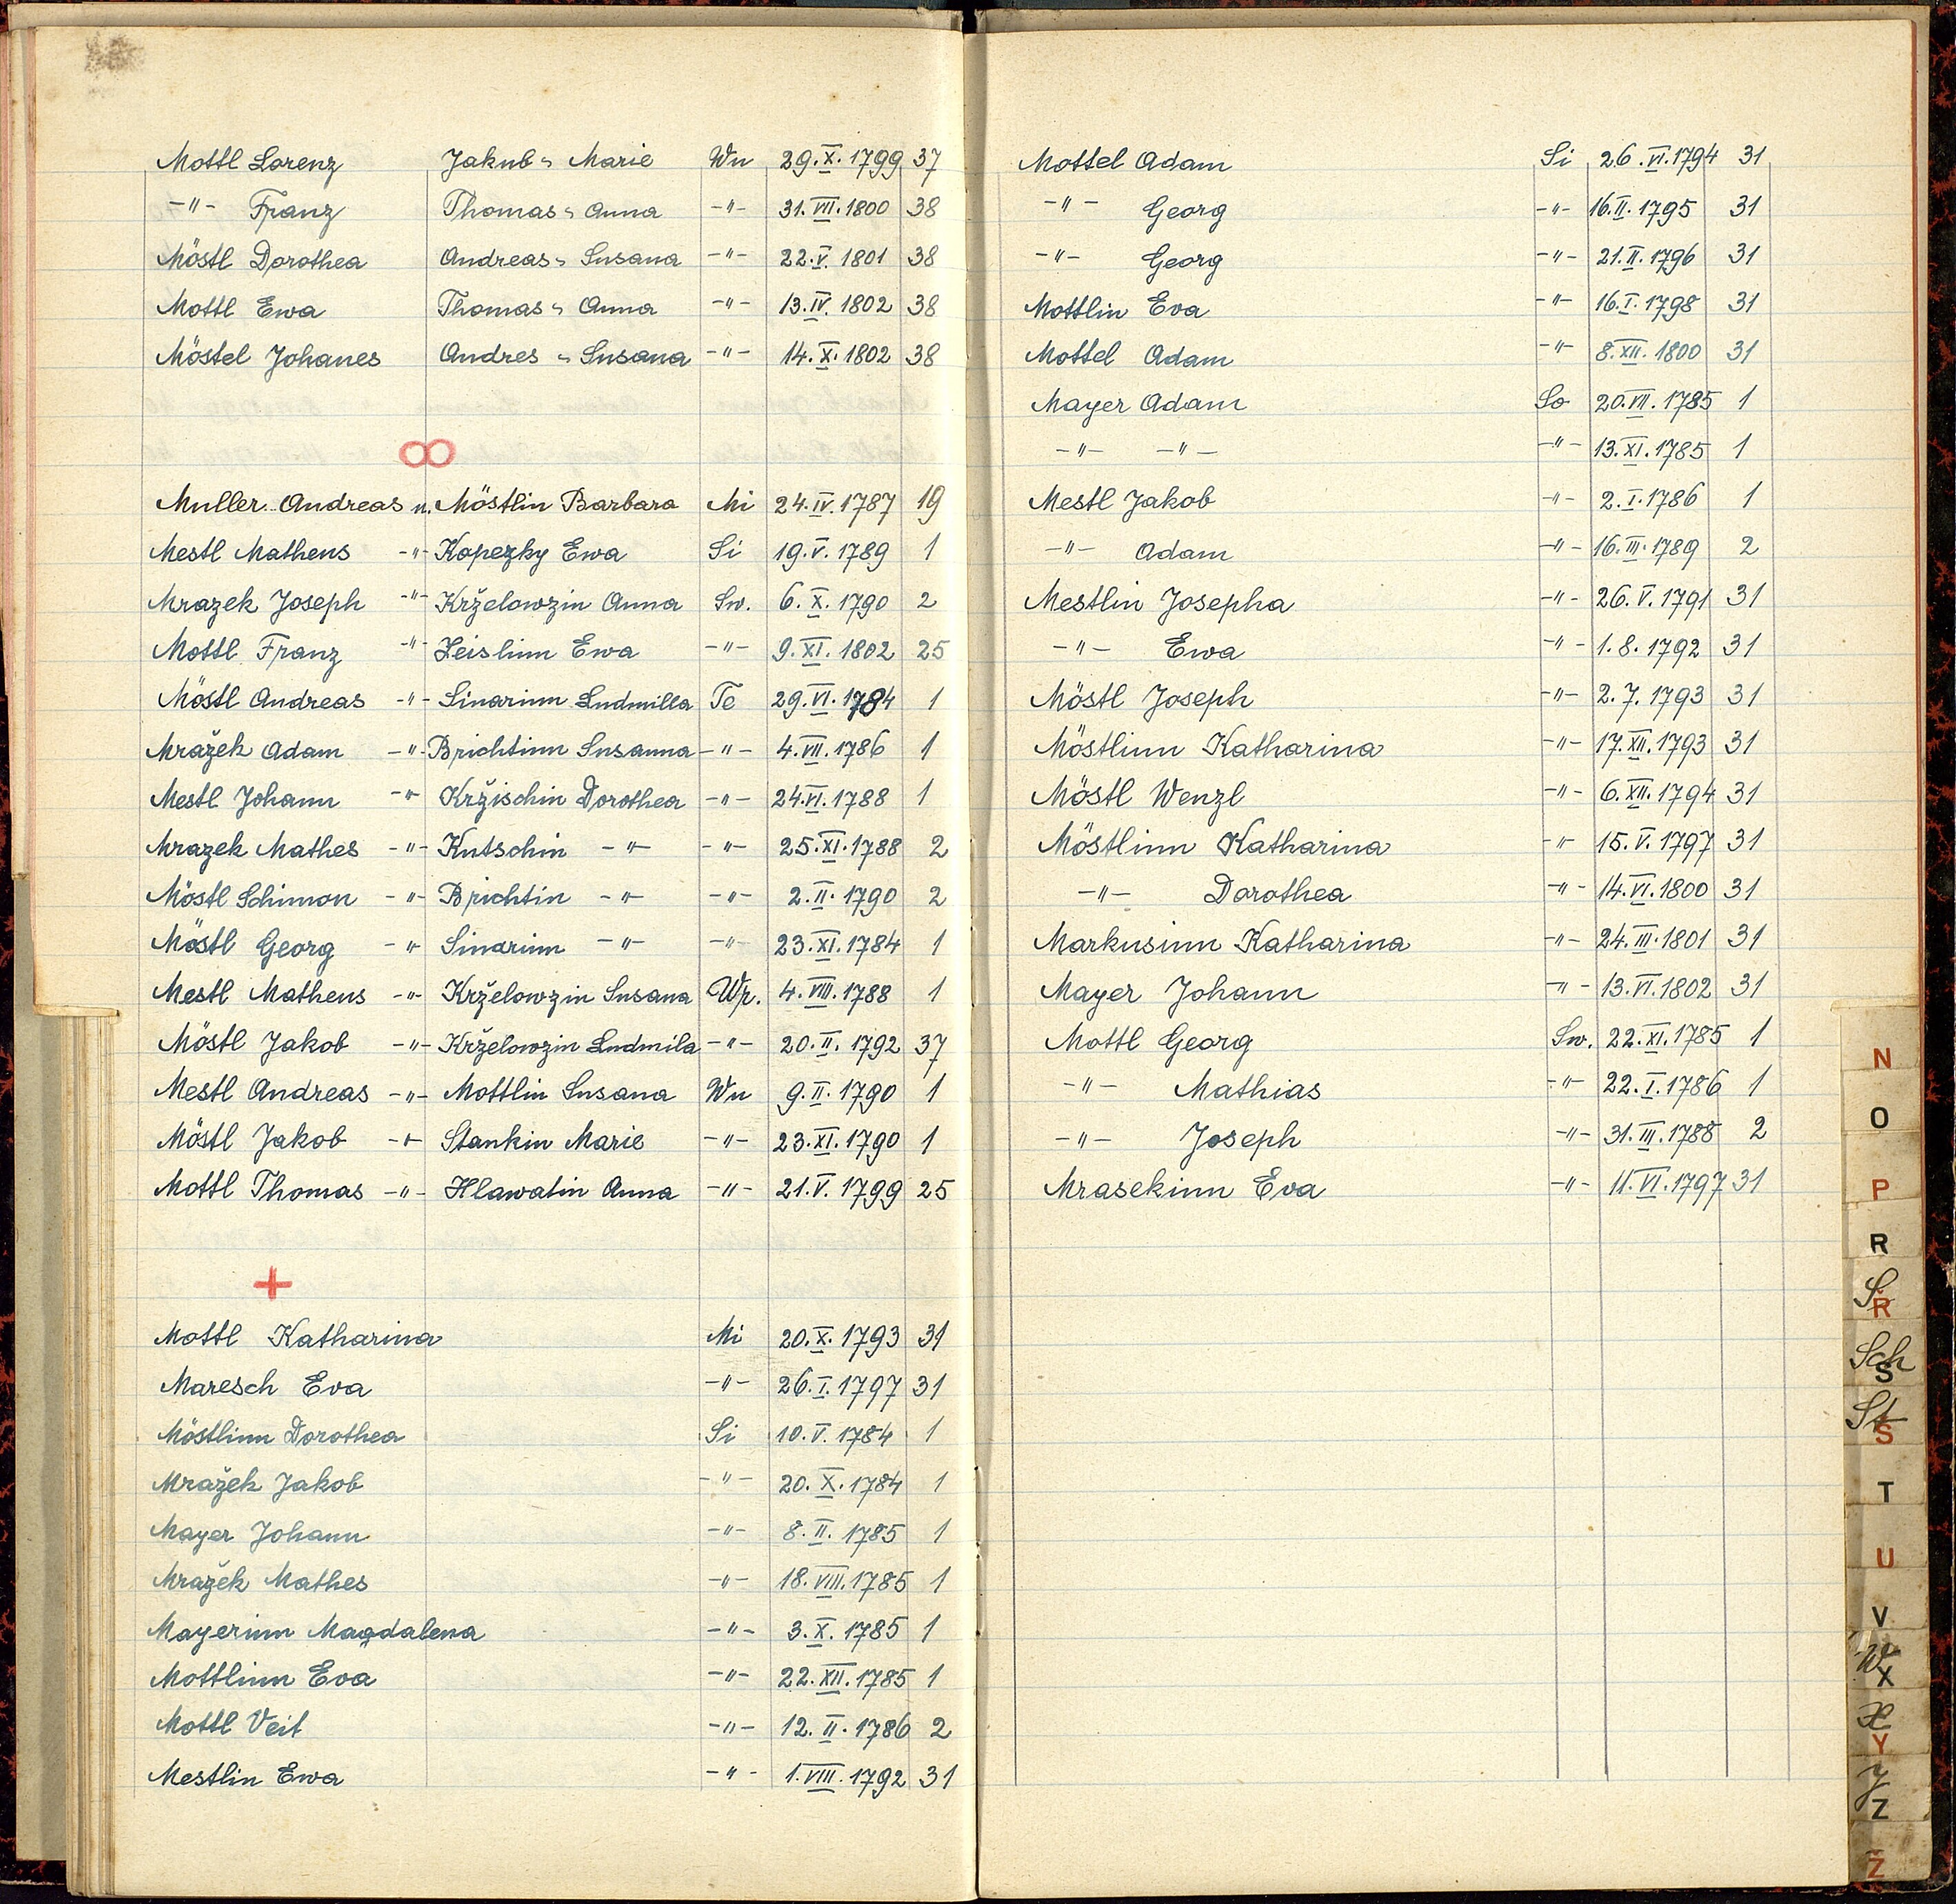 Mottl Lorenz Jakub u Marie Wn 29.X.1799 37
-"- Franz Thomas u Anna -"- 31.VII.1800 38
Möstl Dorothea Andreas u Susana -"- 22.V.1801 38
Mottl Ewa Thomas u Anna -"- 13.IV.1802 38
Möstel Johanes Andres u Susana -"- 14.X.1802 38
∞
Muller Andreas u. Möstlin Barbara Mi 24.IV.1787 19
Mestl Matheus -"- Kopezky Ewa Si 19.V.1789 1
Mrazek Joseph -"- Krželowzin Anna Sw. 6.X.1790 2
Mottl Franz -"- Zeislinn Ewa -"- 9.XI.1802 25
Möstl Andreas -"- Sinarinn Ludmilla Te 29.VI.1784 1
Mražek Adam -"- Brichtinn Susanna -"- 4.VII.1786 1
Mestl Johann -"- Kržischin Dorothea -"- 24.VI.1788 1
Mrazek Mathes -"- Kutschin -"- -"- 25.XI.1788 2
Möstl Schimon -"- Brichtin -"- -"- 2.II.1790 2
Möstl Georg -"- Sinarinn -"- -"- 23.XI.1784 1
Mestl Matheus -"- Krželowzin Susana Wr. 4.VIII.1788 1
Möstl Jakob -"- Krželowzin Ludmila -"- 20.II.1792 37
Mestl Andreas -"- Mottlin Susana Wn 9.II.1790 1
Möstl Jakob -"- Stankin Marie -"- 23.XI.1790 1
Mottl Thomas -"- Hlawatin Anna -"- 21.V.1799 25
+
Mottl Katharina Mi 20.X.1793 31
Maresch Eva -"- 26.I.1797 31
Möstlinn Dorothea Si 10.V.1784 1
Mražek Jakob -"- 20.X.1784 1
Mayer Johann -"- 8.II.1785 1
Mražek Mathes -"- 18.VIII.1785 1
Mayerinn Magdalena -"- 3.X.1785 1
Mottlinn Eva -"- 22.XII.1785 1
Mottl Veit -"- 12.II.1786 2
Mestlin Ewa -"- 1.VIII.1792 31
Mottel Adam Si 26.VI.1794 31
-"- Georg -"- 16.II.1795 31
-"- Georg -"- 21.II.1796 31
Mottlin Eva -"- 16.I.1798 31
Mottel Adam -"- 8.XII.1800 31
Mayer Adam So 20.VII.1785 1
-"- -"- -"- 13.XI.1785 1
Mestl Jakob -"- 2.I.1786 1
-"- Adam -"- 16.III.1789 2
Mestlin Josepha -"- 26.V.1791 31
-"- Ewa -"- 1.8.1792 31
Möstl Joseph -"- 2.7.1793 31
Möstlinn Katharina -"- 17.XII.1793 31
Möstl Wenzl -"- 6.XII.1794 31
Möstlinn Katharina -"- 15.V.1797 31
-"- Dorothea -"- 14.VI.1800 31
Markusinn Katharina -"- 24.III.1801 31
Mayer Johann -"- 13.VI.1802 31
Mottl Georg Sw. 22.XI.1785 1
-"- Mathias -"- 22.I.1786 1
-"- Joseph -"- 31.III.1788 2
Mrasekinn Eva -"- 11.VI.1797 31
N
O
P
R
Ř
Sch
S
St
Š
T
U
V
W
X
Y
Z
Ž